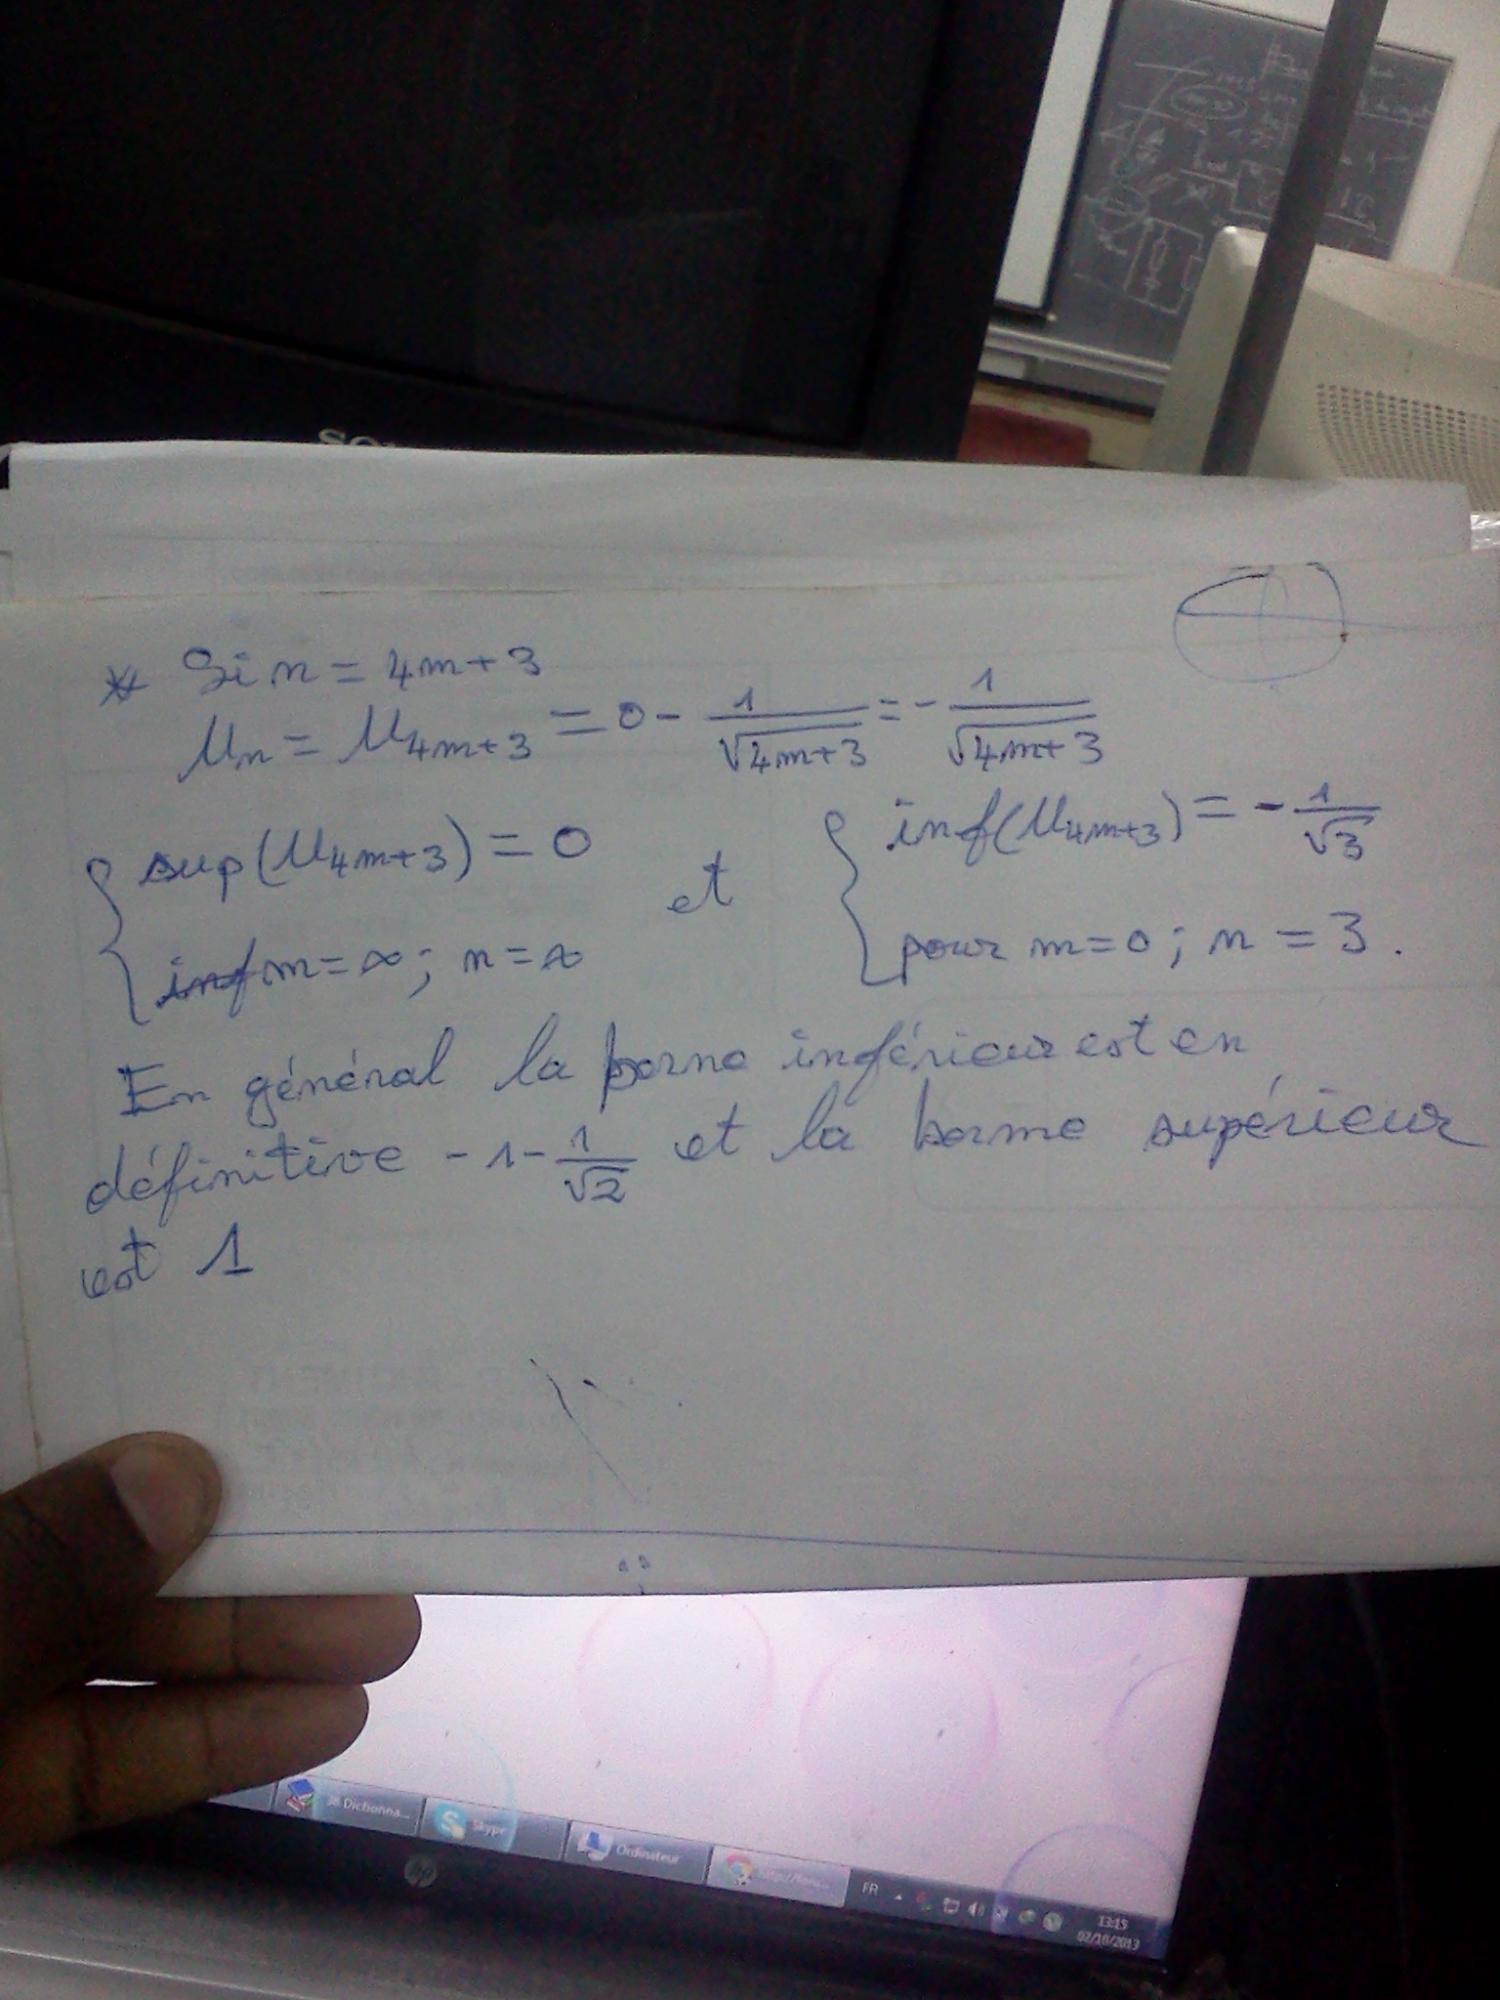 * Si n = 4m+3
Un = U4m+3 = 0 - 1/√(4m+3) = - 1/√(4m+3)
{ sup(U4m+3) = 0 et { inf(U4m+3) = - 1/√3
m = ∞ ; n = ∞ pour m = 0 ; n = 3 .
En général la borne inférieur est en
définitive - 1 - 1/√2 et la borne supérieur
est 1
Dictionna...
Skype
Ordinateur
FR
13:15
02/10/2013
hp